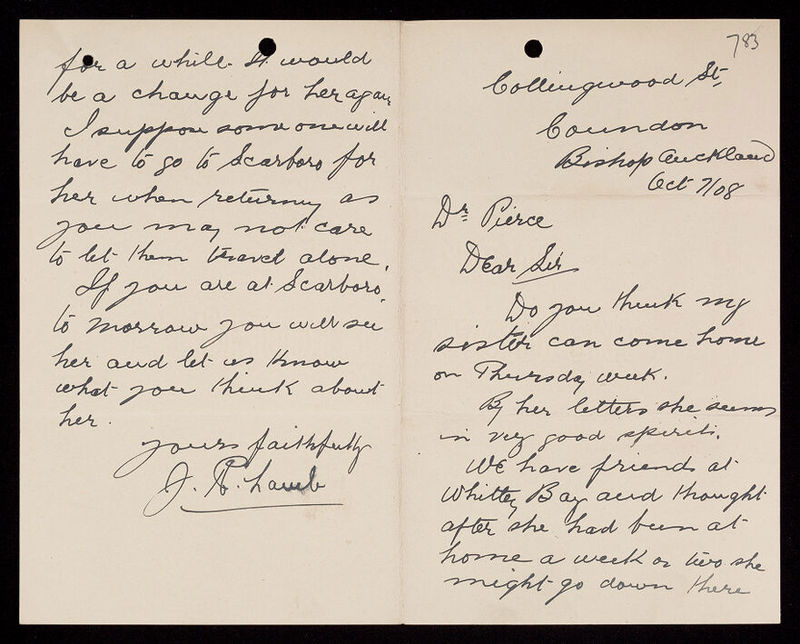 783
Collingwood St,
Coundon
Bishop Auckland
Oct 7/08
Dr Pierce
Dear Sir
Do you think my
sister can come home
on Thursday week.
By her letters she seems
in very good spirits.
We have friends at
Whitley Bay and thought
after she had been at
home a week or two she
might go down there
for a while. It would
be a change for her again
I suppose some one will
have to go to Scarboro for
her when returning as
you may not care
to let them travel alone.
If you are at Scarboro
to morrow you will see
her and let us know
what you think about
her.
yours faithfully
J. R. Lamb